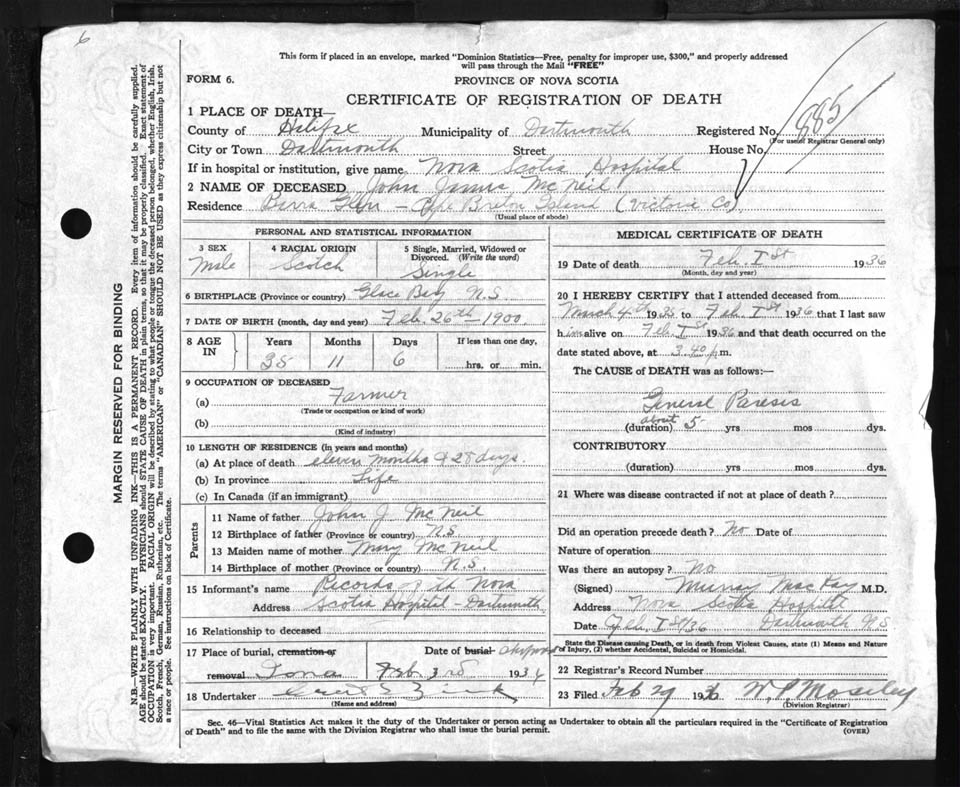 6
This form if placed in an envelope, marked "Dominion Statistics—Free, penalty for improper use, $300," and properly addressed
will pass through the Mail "FREE"
FORM 6.
PROVINCE OF NOVA SCOTIA
CERTIFICATE OF REGISTRATION OF DEATH
1 PLACE OF DEATH—
County of Halifax Municipality of Dartmouth Registered No. 885
(For use of Registrar General only)
City or Town Dartmouth Street House No.
If in hospital or institution, give name Nova Scotia Hospital
2 NAME OF DECEASED John James McNeil
Residence Barra Glen – Cape Breton Island (Victoria Co)
(Usual place of abode)
PERSONAL AND STATISTICAL INFORMATION
3 SEX 4 RACIAL ORIGIN 5 Single, Married, Widowed or
Divorced. (Write the word)
Male Scotch Single
6 BIRTHPLACE (Province or country) Glace Bay N.S.
7 DATE OF BIRTH (month, day and year) Feb. 26th – 1900
8 AGE IN Years Months Days If less than one day,
35 11 6 hrs. or min.
9 OCCUPATION OF DECEASED
(a) Farmer
(Trade or occupation or kind of work)
(b)
(Kind of industry)
10 LENGTH OF RESIDENCE (in years and months)
(a) At place of death eleven months & 28 days.
(b) In province Life
(c) In Canada (if an immigrant)
Parents
11 Name of father John J. McNeil
12 Birthplace of father (Province or country) N.S.
13 Maiden name of mother Mary McNeil
14 Birthplace of mother (Province or country) N.S.
15 Informant's name Records of the Nova
Address Scotia Hospital – Dartmouth
16 Relationship to deceased
17 Place of burial, cremation or Date of burial
removal Iona Feb. 3rd 1936
18 Undertaker
(Name and address)
MEDICAL CERTIFICATE OF DEATH
19 Date of death Feb. 1st 1936
(Month, day and year)
20 I HEREBY CERTIFY that I attended deceased from
March 4th 1935 to Feb. 1st 1936 that I last saw
him alive on Feb. 1st 1936 and that death occurred on the
date stated above, at 3.40 p.m.
The CAUSE of DEATH was as follows:—
General Paresis
(duration) about 5 yrs mos dys.
CONTRIBUTORY
(duration) yrs mos dys.
21 Where was disease contracted if not at place of death?
Did an operation precede death? No Date of
Nature of operation
Was there an autopsy? No
(Signed) Murray MacKay M.D.
Address Nova Scotia Hospital
Date Feb. 1st/36 Dartmouth N.S
State the Disease causing Death, or in death from Violent Causes, state (1) Means and Nature
of Injury, (2) whether Accidental, Suicidal or Homicidal.
22 Registrar's Record Number
23 Filed Feb 29 1936 W. P. Moseley
(Division Registrar)
Sec. 46—Vital Statistics Act makes it the duty of the Undertaker or person acting as Undertaker to obtain all the particulars required in the "Certificate of Registration
of Death" and to file the same with the Division Registrar who shall issue the burial permit.
(OVER)
MARGIN RESERVED FOR BINDING
N.B.—WRITE PLAINLY WITH UNFADING INK—THIS IS A PERMANENT RECORD. Every item of information should be carefully supplied.
AGE should be stated EXACTLY. PHYSICIANS should STATE CAUSE OF DEATH in plain terms, so that it may be properly classified. Exact statement of
OCCUPATION is very important. RACIAL ORIGIN will be described by stating to what people or tongue the deceased person belonged, whether English, Irish,
Scotch, French, German, Russian, Ruthenian, etc. The terms "AMERICAN" or "CANADIAN" SHOULD NOT BE USED as they express citizenship but not
a race or people. See instructions on back of Certificate.